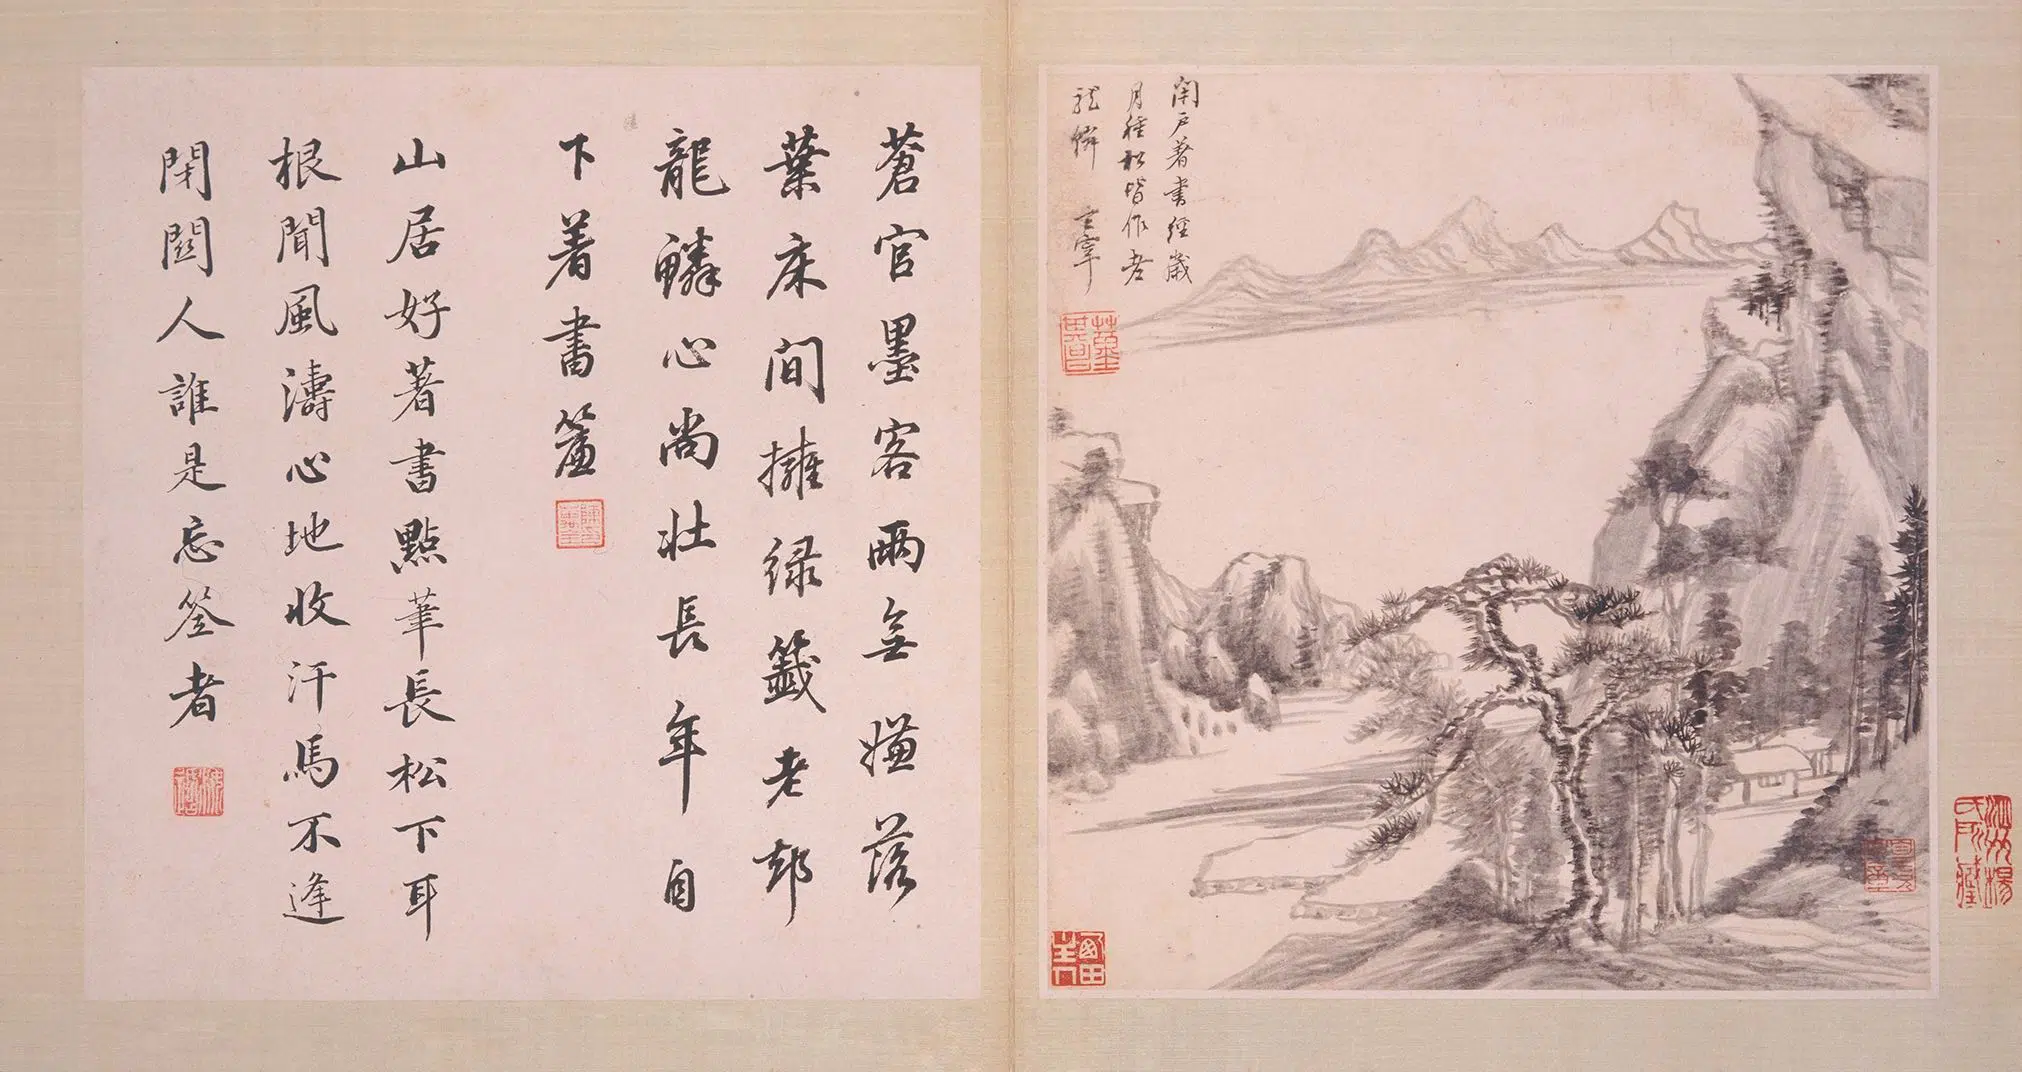 閉戶著書經歲
月種松皆作老
龍鱗 玄宰
董其昌
蒼官墨客兩無嫌落
葉床間擁緑籤老却
龍鱗心尚壯長年自
下著書簾
山居好著書點筆長松下耳
根聞風濤心地收汗馬不逢
閉關人誰是忘筌者